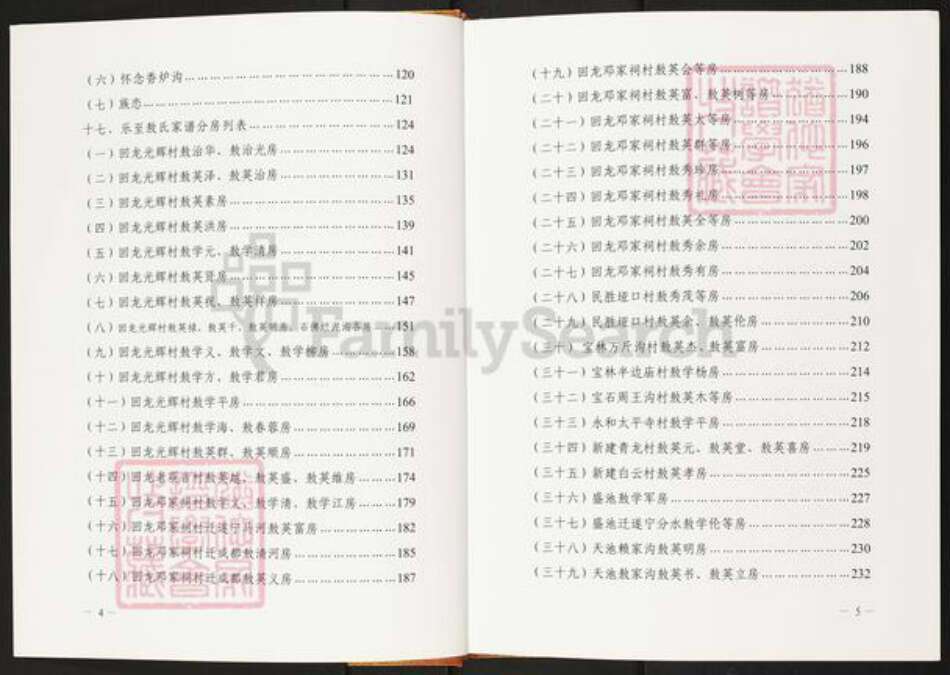 （六）怀念香炉沟………………………………120
（七）族恋………………………………121
十七、乐至敖氏家谱分房列表………………………………124
（一）回龙光辉村敖治华、敖治光房………………………………124
（二）回龙光辉村敖英泽、敖英治房………………………………131
（三）回龙光辉村敖英素房………………………………135
（四）回龙光辉村敖英洪房………………………………139
（五）回龙光辉村敖学元、敖学清房………………………………141
（六）回龙光辉村敖英贤房………………………………145
（七）回龙光辉村敖英民、敖英祥房………………………………147
（八）回龙光辉村敖英绿、敖英千、敖英明房、石佛………151
（九）回龙光辉村敖学义、敖学文、敖学栋房………………………………158
（十）回龙光辉村敖学方、敖学君房………………………………162
（十一）回龙光辉村敖学平房………………………………166
（十二）回龙光辉村敖学海、敖春蓉房………………………………169
（十三）回龙光辉村敖英群、敖英顺房………………………………171
（十四）回龙老 村敖英超、敖英盛、敖英维房………………………………174
（十五）回龙邓家祠村敖学文、敖学清、敖学江房………………………………179
（十六）回龙邓家祠村迁遂宁 河敖英富房………………………………182
（十七）回龙邓家祠村迁成都敖清河房………………………………185
（十八）回龙邓家祠村迁成都敖英义房………………………………187
－ 4 －
（十九）回龙邓家祠村敖英会等房………………………………188
（二十）回龙邓家祠村敖英富、敖英树等房………………………………190
（二十一）回龙邓家祠村敖英太等房………………………………194
（二十二）回龙邓家祠村敖英群等房………………………………196
（二十三）回龙邓家祠村敖秀珍房………………………………197
（二十四）回龙邓家祠村敖秀礼房………………………………198
（二十五）回龙邓家祠村敖英全等房………………………………200
（二十六）回龙邓家祠村敖秀余房………………………………202
（二十七）回龙邓家祠村敖秀有房………………………………204
（二十八）民胜垭口村敖秀茂等房………………………………206
（二十九）民胜垭口村敖英余、敖英伦房………………………………210
（三十）宝林万斤沟村敖英杰、敖英富房………………………………212
（三十一）宝林半边庙村敖学杨房………………………………214
（三十二）宝石周王沟村敖英木等房………………………………215
（三十三）永和太平寺村敖学平房………………………………218
（三十四）新建青龙村敖英元、敖英堂、敖英喜房………219
（三十五）新建白云村敖英孝房………………………………225
（三十六）盛池敖学军房………………………………227
（三十七）盛池迁遂宁分水敖学伦等房………………………………228
（三十八）天池赖家沟敖英明房………………………………230
（三十九）天池敖家沟敖英书、敖英立房………………………………232
－ 5 －
FamilySearch